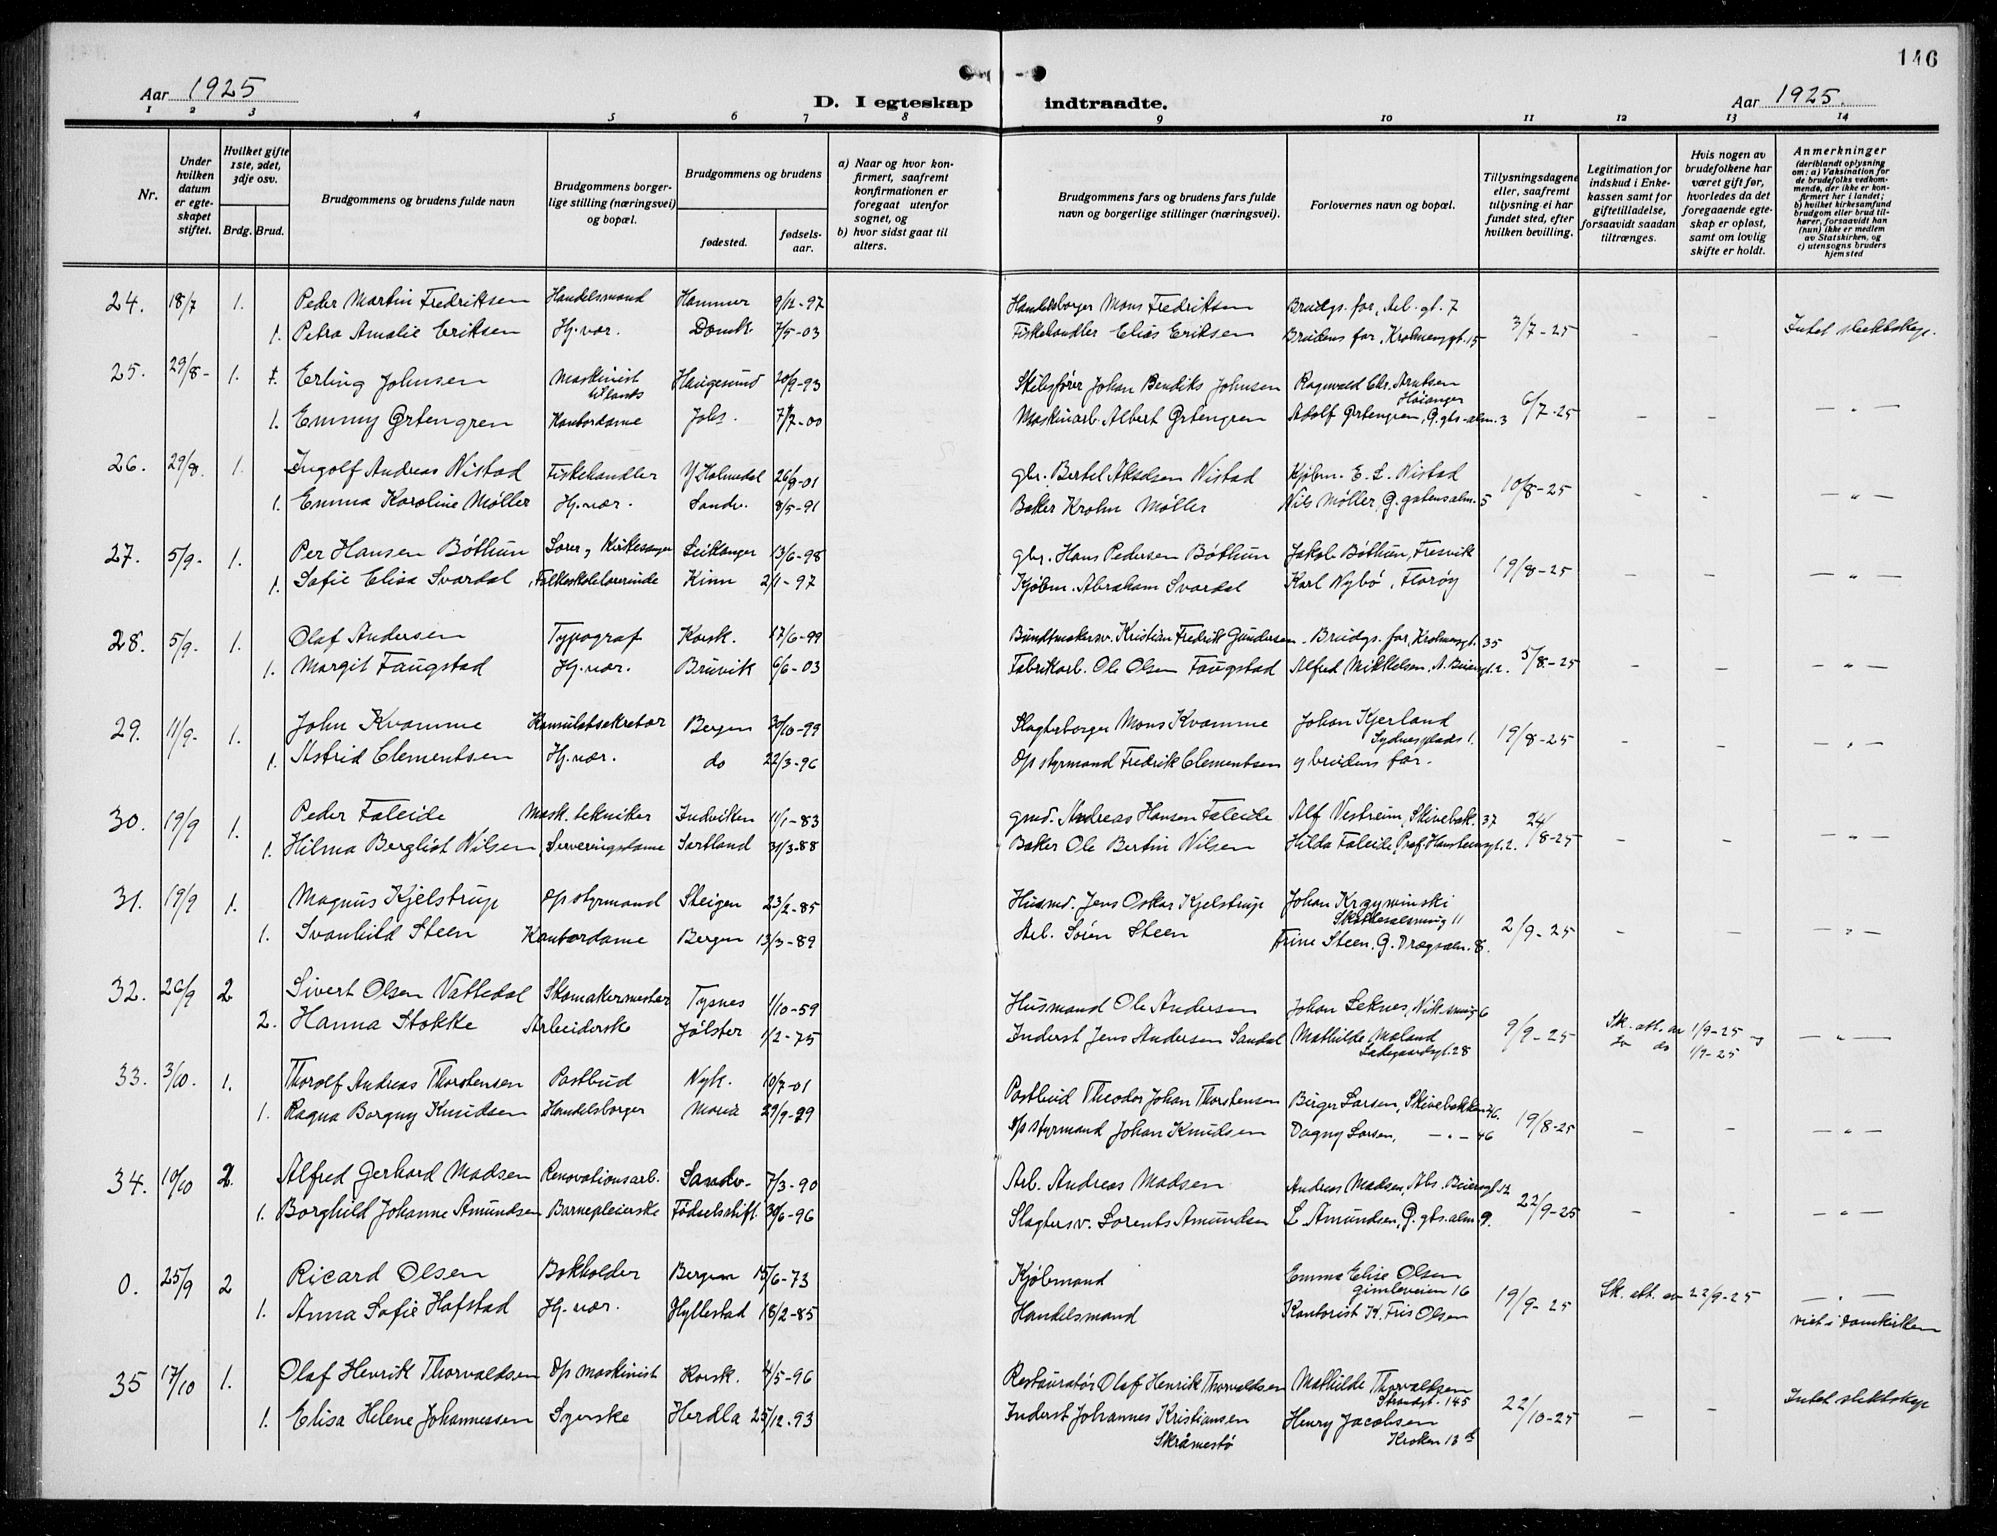 146
Aar 1925
D. I egteskap indtraadte.
Aar 1925.
1 2 3 4 5 6 7 8 9 10 11 12 13 14
Nr.
Under hvilken datum er egteskapet stiftet.
Hvilket gifte 1ste, 2det, 3dje osv.
Brdg. Brud.
Brudgommens og brudens fulde navn
Brudgommens borgerlige stilling (næringsvei) og bopæl.
Brudgommens og brudens
fødested.
fødselsaar.
a) Naar og hvor konfirmert, saafremt konfirmationen er foregaat utenfor sognet, og
b) hvor sidst gaat til alters.
Brudgommens fars og brudens fars fulde navn og borgerlige stillinger (næringsvei).
Forlovernes navn og bopæl.
Tillysningsdagene eller, saafremt tillysning ei har fundet sted, efter hvilken bevilling.
Legitimation for indskud i Enkekassen samt for giftetilladelse, forsaavidt saadan tiltrænges.
Hvis nogen av brudefolkene har været gift før, hvorledes da det foregaaende egteskap er opløst, samt om lovlig skifte er holdt.
Anmerkninger (deriblandt oplysning om: a) Vaksination for de brudefolks vedkommende, der ikke er konfirmert her i landet; b) hvilket kirkesamfund brudgom eller brud tilhører, forsaavidt han (hun) ikke er medlem av Statskirken, og c) utensogns bruders hjemsted
24. 18/7 1. Peder Martin Fredriksen Handelsmand Hammer 9/12-97 Handelsborger Mons Fredriksen Brudgs. far, Arb. gt. 7 3/7-25 – – Intet slektskap.
1. Petra Amalie Eriksen Hj.vær. Domk. 7/5-03 Fiskehandler Elias Eriksen Brudens far, Krohnengt. 15
25. 29/8- 1. Erling Johnsen Maskinist Haugesund 20/9-93 Skibsfører Johan Bendiks Johnsen Ragnvald Chr. Arntsen
Høianger 6/7-25 – – – „ –
1. Emmy Ørtengren Kontordame Johs. 7/7-00 Maskinarb. Albert Ørtengren Adolf Ørtengren, G. gts-alm. 3
26. 29/8. 1. Ingolf Andreas Nistad Fiskehandler Y. Holmedal 26/8-01 gbr. Bertel Nistad Kjøbm. E. L. Nistad 10/8-25 – – – „ –
1. Emma Karoline Møller Hj.vær. Sandv. 8/5-91 Baker Krohn Møller Nils Møller, G. gatens alm. 5
27. 5/9- 1. Per Hansen Bøthun Lærer og Kirkesanger Leikanger 13/6-98 gbr. Hans Pedersen Bøthun Jakob Bøthun, Fresvik 19/8-25 – – – „ –
1. Sofie Elisa Svardal, Folkeskolelærerinde Kinn 2/1-97 Kjøbm. Abraham Svardal Karl Nybø, Florøy
28. 5/9- 1. Olaf Andersen Typograf Korsk. 17/6-99 Bundtmakersv. Kristian Fredrik Gundersen. Brudgs. far, Krohnengt. 35
1. Margit Faugstad Hj.vær. Bruvik 6/6-03 Fabrikarb. Ole Olsen Faugstad Alfred Mikkelsen, A. Beiersgt. 2. 5/8-25 – – – „ –
29. 11/9- 1. John Kvamme Konsulatsekretær Bergen 30/10-99 Slagterborger Mons Kvamme Johan Kjerland
Sydnesplads 1. 19/8-25 – – – „ –
1. Astrid Clementsen Hj.vær. do 22/3-96 D/s styrmand Fredrik Clementsen og brudens far.
30. 19/9 1. Peder Faleide Mask. tekniker Indviken 11/1-83 gmd. Andreas Hansen Faleide Alf Vestreim, Skivebak. 37 24/8-25 – – – „ –
1. Hilma Bergliot Nilsen Serveringsdame Sortland 31/3-88 Baker Ole Bertin Nilsen Hilda Faleide, Prof. Hansteensgt. 2.
31. 19/9 1. Magnus Kjelstrup D/s styrmand Steigen 23/2-85 Husmd. Jens Oskar Kjelstrup Johan Krzywinski
11 2/9-25 – – – „ –
1. Svanhild Steen Kontordame Bergen 13/3-89 Arb. Søren Steen Trine Steen, G. Dragsalm. 8.
32. 26/9 2 Sivert Olsen Vattedal Skomakermester Tysnes 1/10-59 Husmand Ole Andersen Johan Leknes, 6
2. Hanna Stokke Arbeiderske Jølster 1/2-75 Inderst Jens Andersen Sandal Mathilde Møland
Ladegaardsgt. 28 9/9-25 Sk. att. av 1/9-25 og
do 1/9-25 – „ –
33. 3/10. 1. Thorolf Andreas Thorstensen Postbud Nyk. 10/7-01 Postbud Theodor Johan Thorstensen Birger Larsen, Skivebakken 46.
1. Ragna Borgny Knudsen Handelsborger Maria 29/9-99 D/s styrmand Johan Knudsen Dagny Larsen, – „ – 46 19/8-25 – – – „ –
34. 10/10 2. Alfred Gerhard Madsen Renovationsarb. Sandv. 7/3-90 Arb. Andreas Madsen Andreas Madsen, Abs. Beiersgt. 12
1. Borghild Johanne Amundsen Barnepleierske Fødselsstift. 30/6-96 Slagtersv. Lorents Amundsen L. Amundsen, G. gts. alm. 9. 22/9-25 – – – „ –
0. 25/9 2 Ricard Olsen Bokholder Bergen 15/6-73 Kjøbmand Emma Elise Olsen
Gimleveien 16 19/9-25 Sk. att. av 22/9-25 – „ –
1. Anna Sofie Hofstad Hj.vær. Hyllestad 18/2-85 Handelsmand Kontorist K. Fris Olsen viet i Domkirken
35 17/10 1. Olaf Henrik Thorvaldsen D/s maskinist Korsk. 4/5-96 Restauratør Olaf Henrik Thorvaldsen Mathilde Thorvaldsen
Strandgt. 145 22/10-25 – – Intet slektskap
1. Elisa Helene Johannessen Syerske Herdla 25/12-93 Inderst Johannes Kristiansen
Skråmestø Henry Jacobsen
Kroken 13